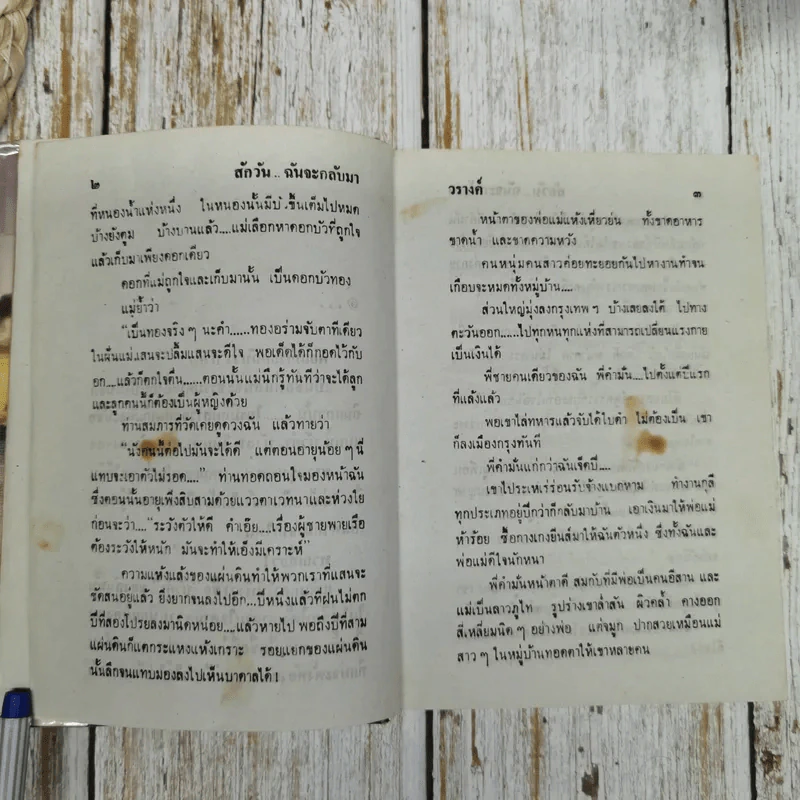 ๒
สักวัน .. ฉันจะกลับมา
ที่หนองน้ำแห่งหนึ่ง ในหนองนั้นมีบัวขึ้นเต็มไปหมด
บ้างยังตูม บ้างบานแล้ว....แม่เลือกหาดอกบัวที่ถูกใจ
แล้วเก็บมาเพียงดอกเดียว
ดอกที่แม่ถูกใจและเก็บมานั้น เป็นดอกบัวทอง
แม่ย้ำว่า
“เป็นทองจริง ๆ นะคำ......ทองอร่ามจับตาทีเดียว
ในฝันแม่แสนจะปลื้มแสนจะดีใจ พอเด็ดได้ก็กอดไว้กับ
อก....แล้วก็ตกใจตื่น......ตอนนั้นแม่นึกรู้ทันทีว่าจะได้ลูก
และลูกคนนี้ก็ต้องเป็นผู้หญิงด้วย
ท่านสมภารที่วัดเคยดูดวงฉัน แล้วทายว่า
“นังคนนี้ต่อไปมันจะได้ดี แต่ตอนอายุน้อย ๆ นี่
แทบจะเอาตัวไม่รอด....” ท่านทอดถอนใจมองหน้าฉัน
ซึ่งตอนนั้นอายุเพิ่งสิบสามด้วยแววตาเวทนาและห่วงใย
ก่อนจะว่า....“ระวังตัวให้ดี คำเอ๊ย....เรื่องผู้ชายพายเรือ
ต้องระวังให้หนัก มันจะทำให้เอ็งมีเคราะห์”
ความแห้งแล้งของแผ่นดินทำให้พวกเราที่แสนจะ
ขัดสนอยู่แล้ว ยิ่งยากจนลงไปอีก...ปีหนึ่งแล้วที่ฝนไม่ตก
ปีที่สองโปรยลงมานิดหน่อย....แล้วหายไป พอถึงปีที่สาม
แผ่นดินก็แตกระแหงแห้งเกราะ รอยแยกของแผ่นดิน
นั้นลึกจนแทบมองลงไปเห็นบาดาลได้ !
วรางค์
๓
หน้าตาของพ่อแม่แห้งเหี่ยวย่น ทั้งขาดอาหาร
ขาดน้ำ และขาดความหวัง
คนหนุ่มคนสาวค่อยทะยอยกันไปหางานทำจน
เกือบจะหมดทั้งหมู่บ้าน....
ส่วนใหญ่มุ่งลงกรุงเทพฯ บ้างเลยลงใต้ ไปทาง
ตะวันออก......ไปทุกหนทุกแห่งที่สามารถเปลี่ยนแรงกาย
เป็นเงินได้
พี่ชายคนเดียวของฉัน พี่คำมั่น....ไปตั้งแต่ปีแรก
ที่แล้งแล้ว
พอเขาไล่ทหารแล้วจับได้ใบดำ ไม่ต้องเป็น เขา
ก็ลงเมืองกรุงทันที
พี่คำมั่นแก่กว่าฉันเจ็ดปี....
เขาไประเหเร่ร่อนรับจ้างแบกหาม ทำงานกุลี
ทุกประเภทอยู่ปีกว่าก็กลับมาบ้าน เอาเงินมาให้พ่อแม่
ห้าร้อย ซื้อกางเกงยีนส์มาให้ฉันตัวหนึ่ง ซึ่งทั้งฉันและ
พ่อแม่ดีใจนักหนา
พี่คำมั่นหน้าตาดี สมกับที่มีพ่อเป็นคนอีสาน และ
แม่เป็นลาวภูไท รูปร่างเขาล่ำสัน ผิวคล้ำ คางออก
สี่เหลี่ยมนิด ๆ อย่างพ่อ แต่จมูก ปากสวยเหมือนแม่
สาว ๆ ในหมู่บ้านทอดตาให้เขาหลายคน